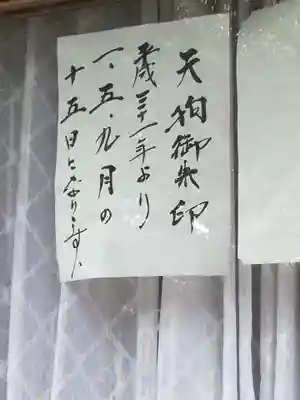 天狗御朱印
平成三十一年より
一、五、九月の
十五日となります、